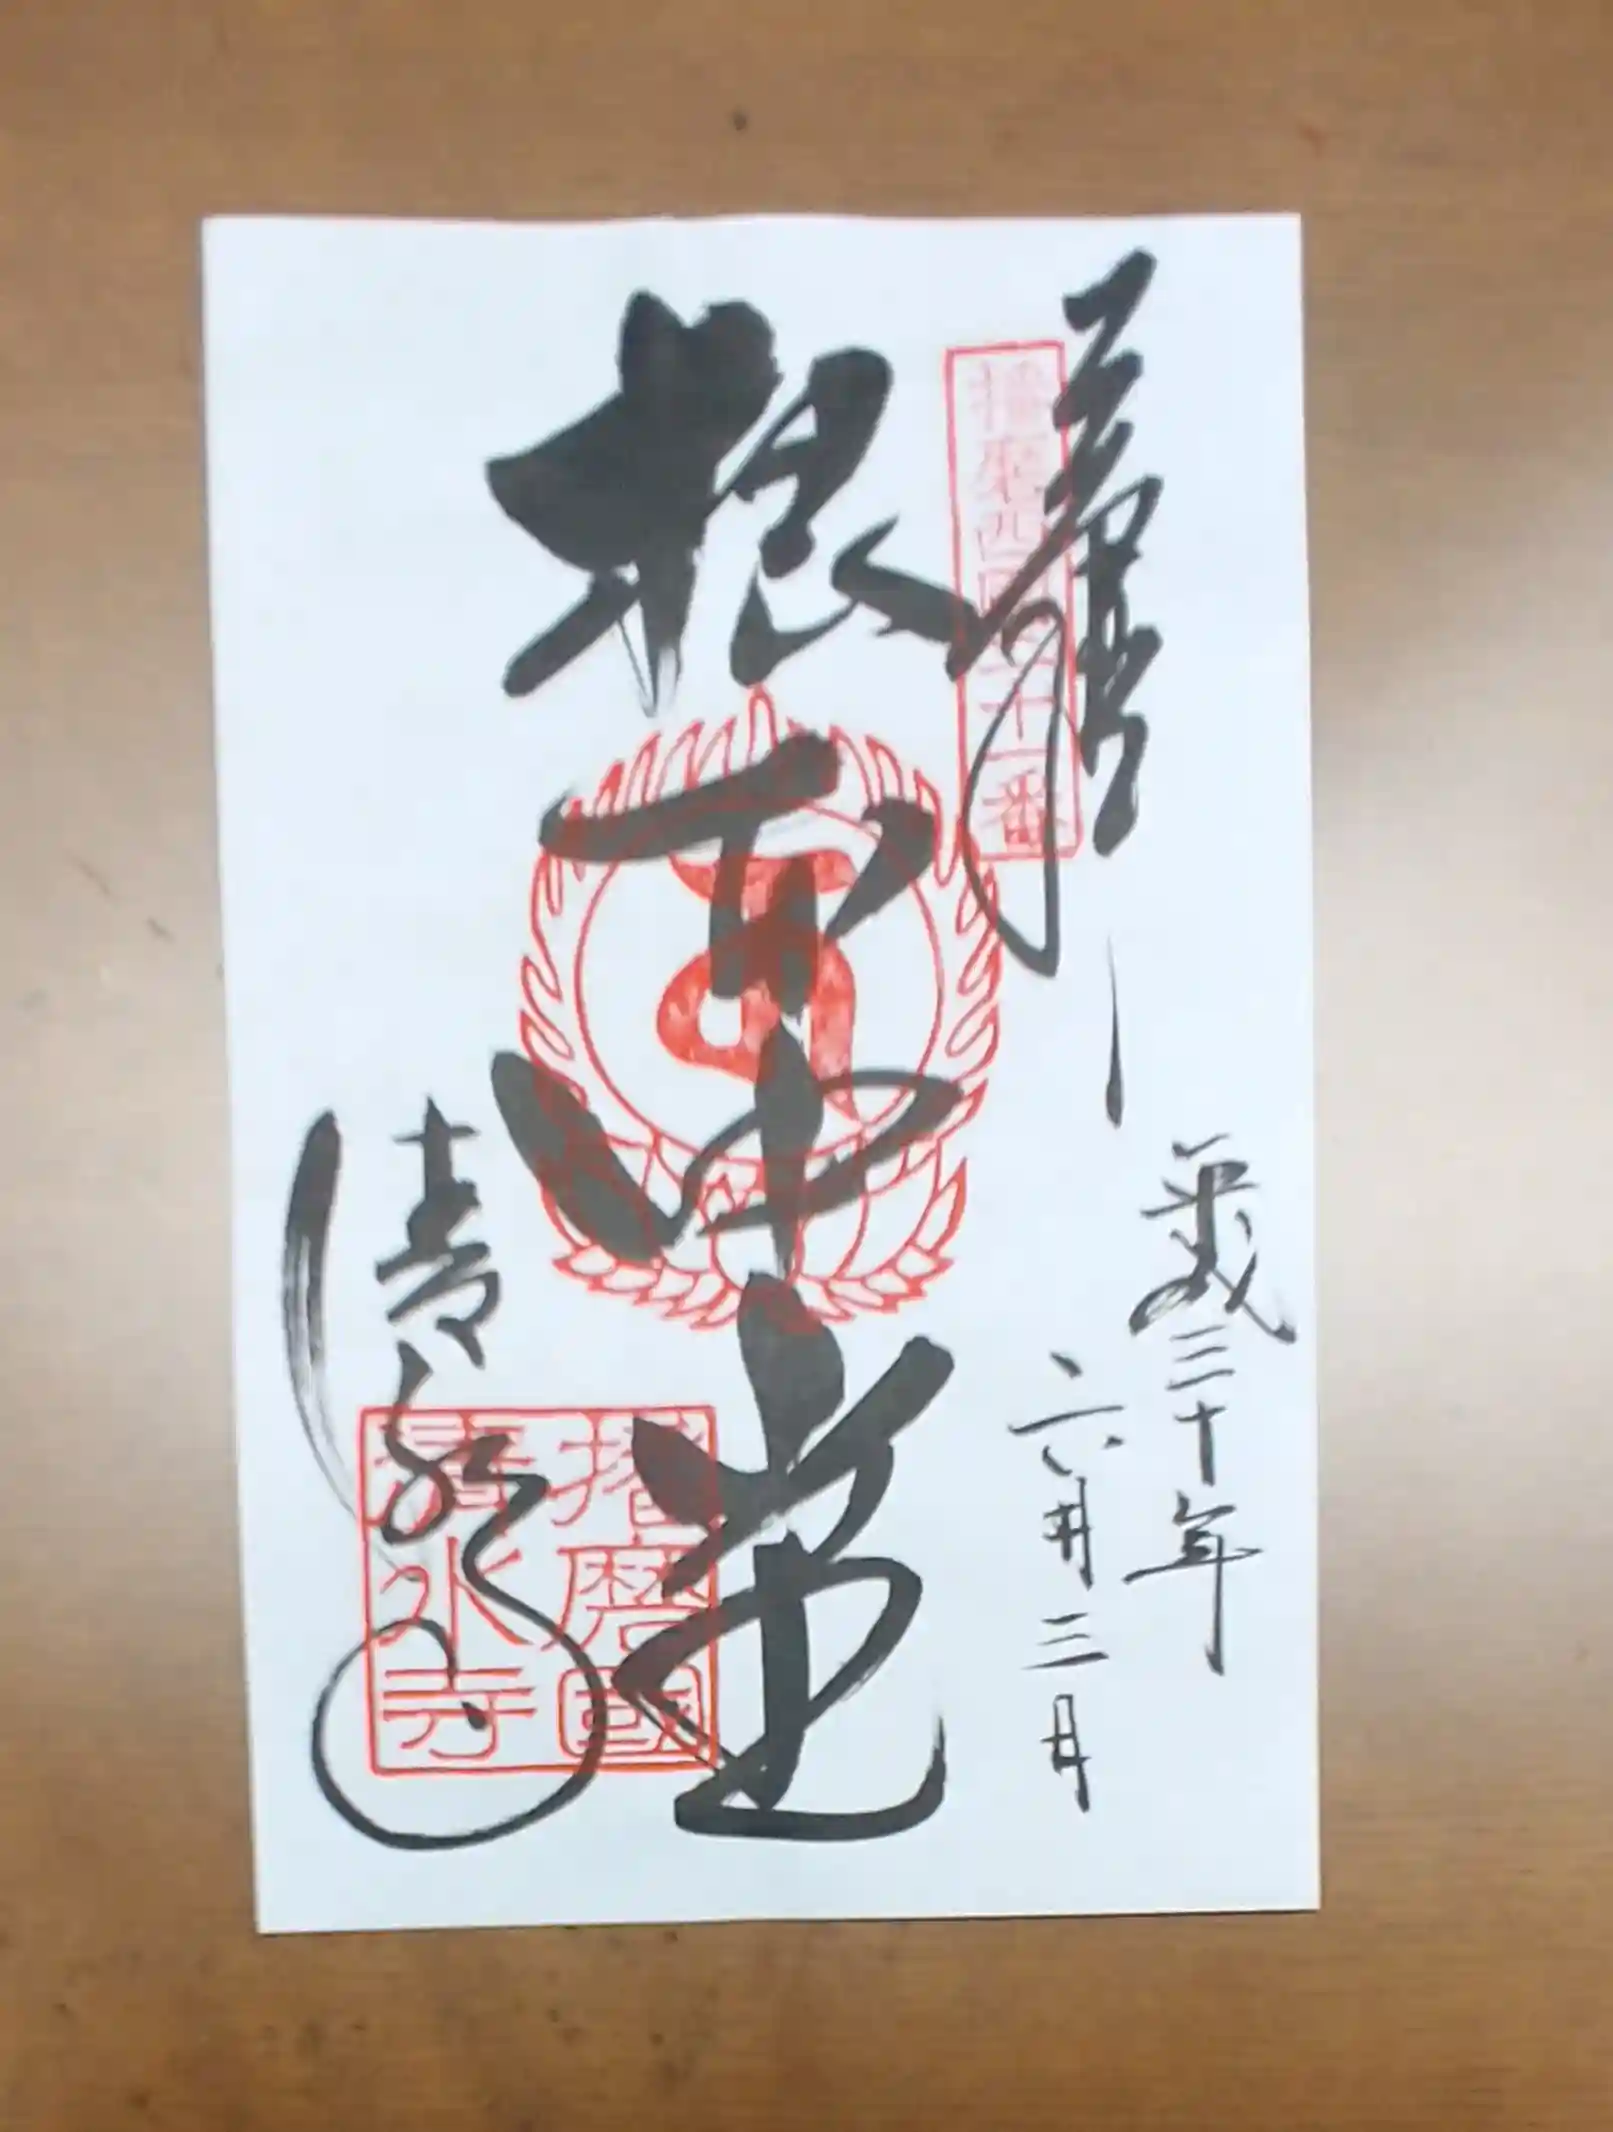 奉拝
播磨西国二十一番
平成三十年
六月三日
根本中堂
清水寺
播磨國
清水寺